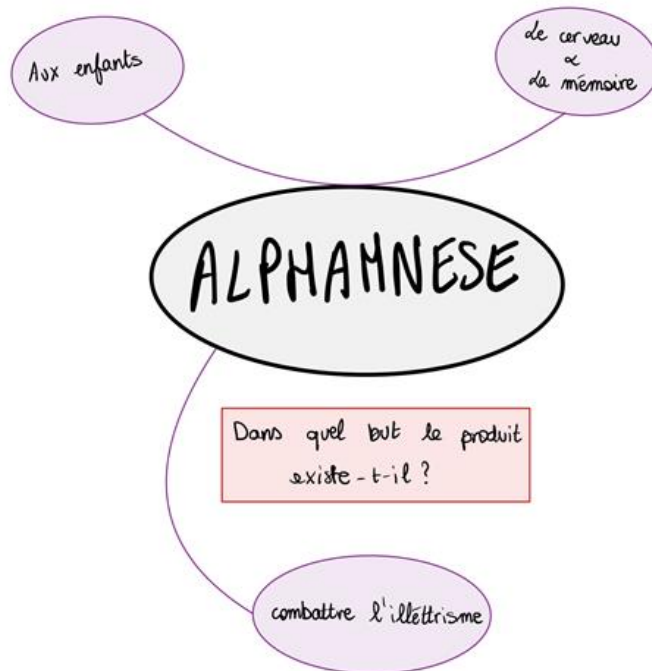 Aux enfants
Le cerveau
&
La mémoire
ALPHAMNESE
Dans quel but le produit
existe-t-il ?
combattre l'illéttrisme